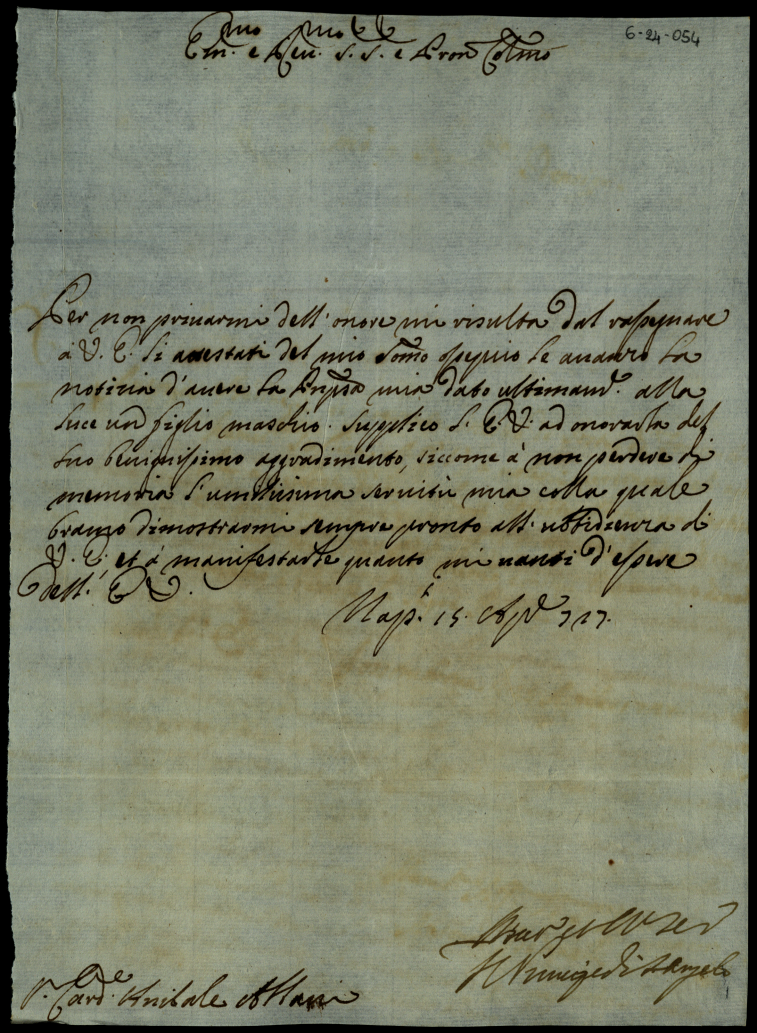 6-24-054
Em.mo e Reu.mo S.r S.r e Pron Colmo
Per non priuarmi dell'onore mi risulta dal rassegnare
à V. E. li attestati del mio sommo ossequio le auanzo la
notizia d'auere la Prnpssa mia dato ultimam.e alla
luce un figlio maschio. Supplico l'E. V. ad onorarla del
suo benignissimo aggradimento, siccome à non perdere di
memoria l'umilissima seruitù mia colla quale
bramo dimostrarmi sempre pronto all'ubbidienza di
V. E. et à manifestarle quanto mi uanti d'essere
dell'E. V.
Nap.i 15. Ap.e 727.
Il Principe di S. Angelo
S.r Card.le Anibale Albani